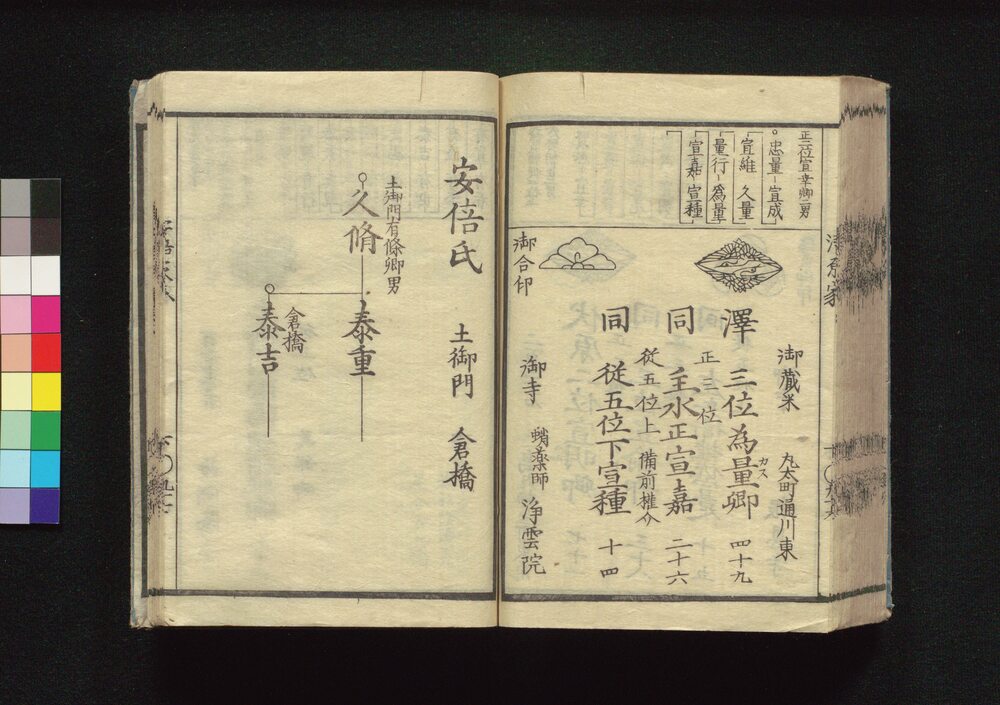 正三位宣幸卿二男
忠量 宣成
宣維 久量
量行 為量
宣嘉 宣種
御蔵米 丸太町通川東
澤 三位為量卿 四十九
カス
正三位
同 主水正宣嘉 二十六
従五位上 備前権介
同 従五位下宣種 十四
御合印 御寺 蛸薬師 浄雲院
清原家
安倍氏 土御門 倉橋
土御門有脩卿男
久脩
泰重
倉橋
泰吉